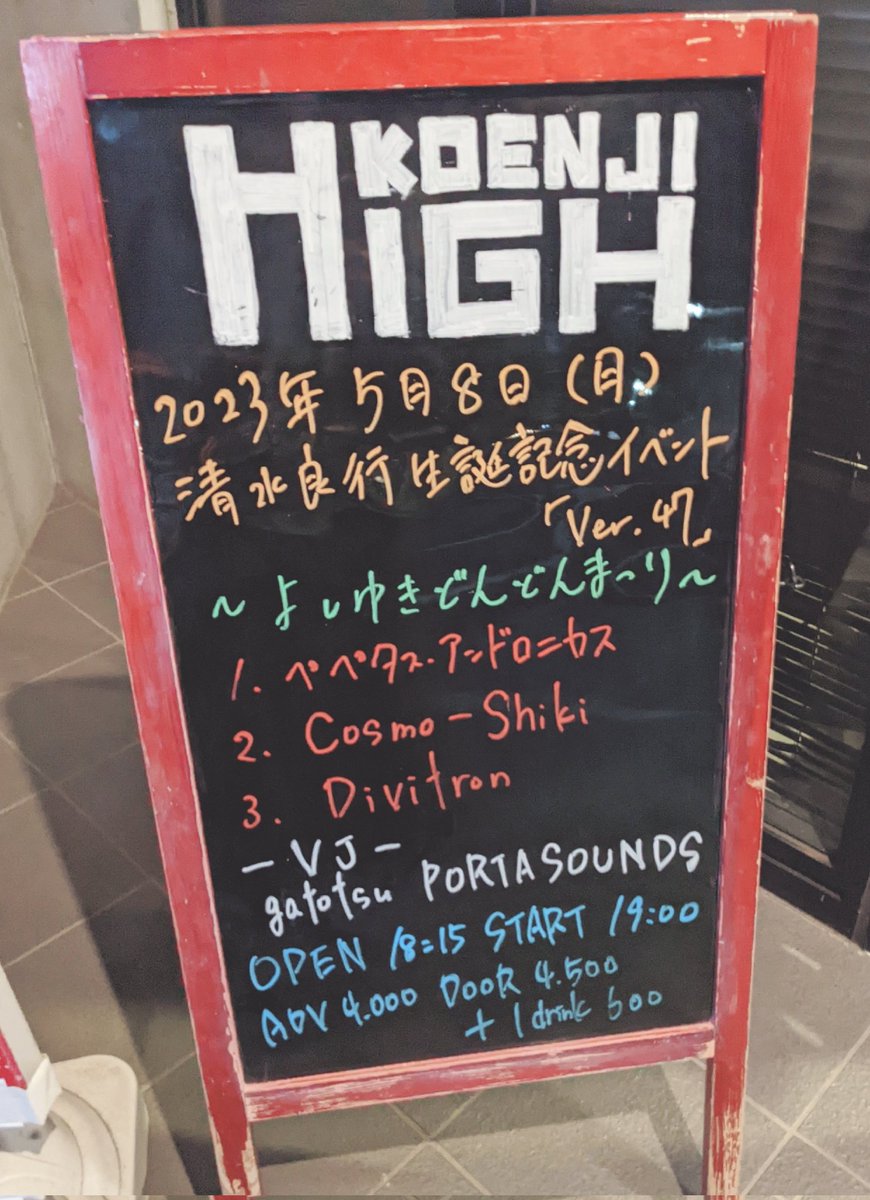 KOENJI
HIGH
2023年5月8日(月)
清水良行生誕記念イベント
「Ver.47」
〜よしゆきどんどんまつり〜
1. ペペタス・アンドロニカス
2. Cosmo-Shiki
3. Divitron
-VJ-
gatotsu PORTASOUNDS
OPEN 18:15 START 19:00
ADV 4.000 DOOR 4.500
+ 1drink 600